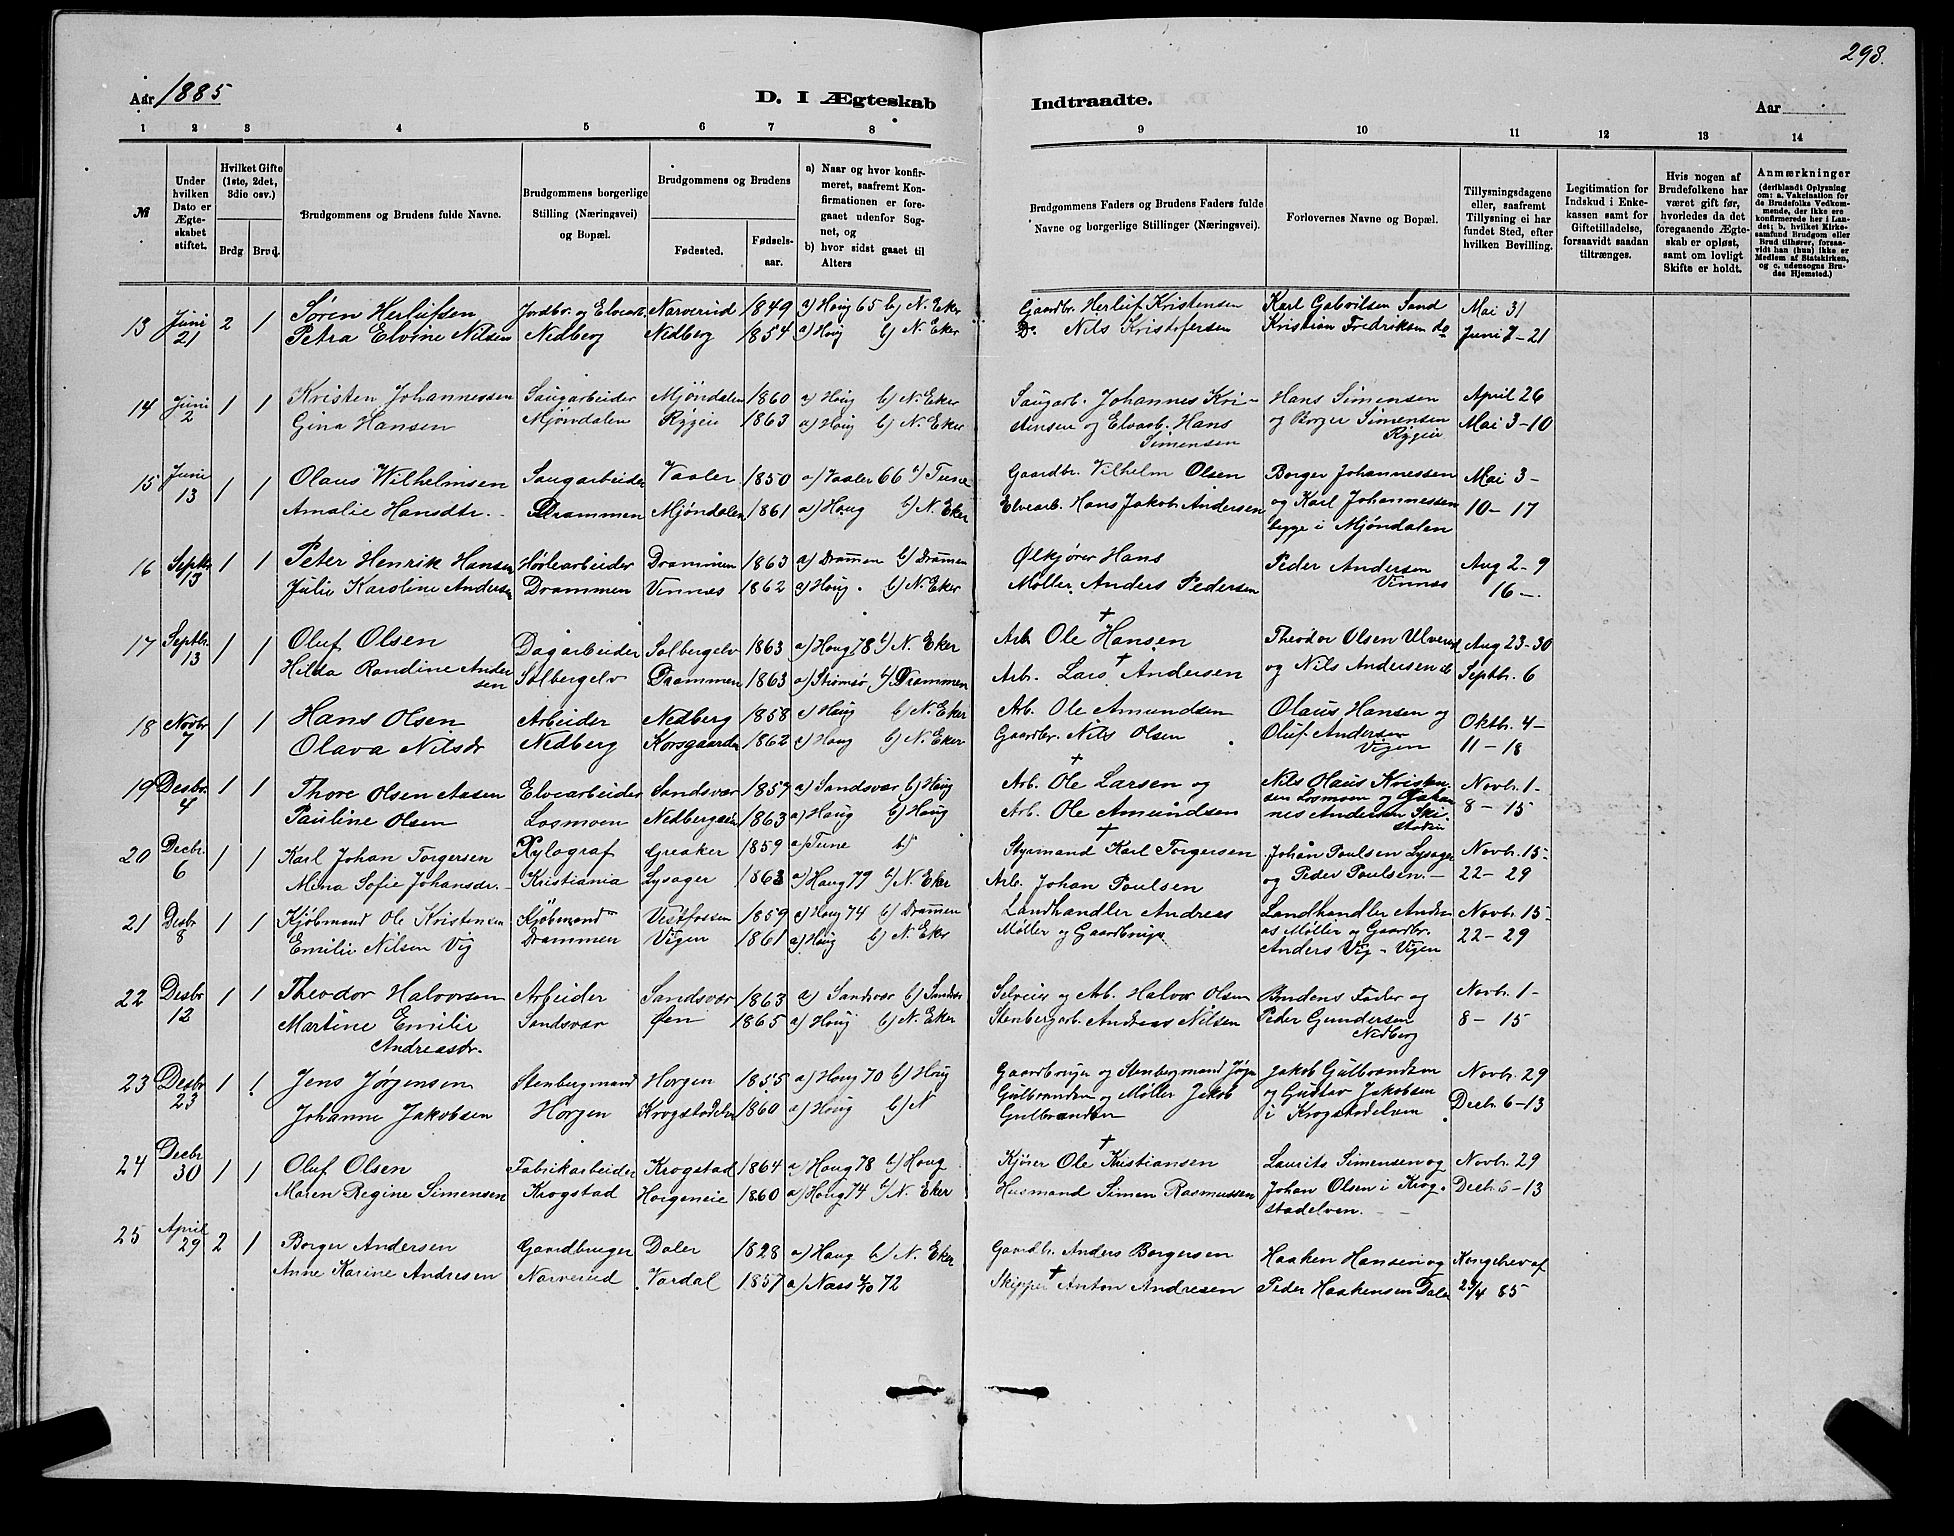 298.
Aar 1885
D. I Ægteskab
Indtraadte.
Aar
1 2 3 4 5 6 7 8
9 10 11 12 13 14
№
Under hvilken Dato er Ægteskabet stiftet.
Hvilket Gifte (1ste, 2det, 3die osv.)
Brdg
Brud.
Brudgommens og Brudens fulde Navne.
Brudgommens borgerlige Stilling (Næringsvei) og Bopæl.
Brudgommens og Brudens
Fødested.
Fødselsaar.
a) Naar og hvor konfirmeret, saafremt Konfirmationen er foregaaet udenfor Sognet, og
b) hvor sidst gaaet til Alters
Brudgommens Faders og Brudens Faders fulde Navne og borgerlige Stillinger (Næringsvei).
Forlovernes Navne og Bopæl.
Tillysningsdagene eller, saafremt Tillysning ei har fundet Sted, efter hvilken Bevilling.
Legitimation for Indskud i Enkekassen samt for Giftetilladelse, forsaavidt saadan tiltrænges.
Hvis nogen af Brudefolkene har været gift før, hvorledes da det foregaaende Ægteskab er opløst, samt om lovligt Skifte er holdt.
Anmærkninger
(deriblandt Oplysning om: a. Vakcination for de Brudefolks Vedkommende, der ikke ere konfirmerede her i Landet; b. hvilket Kirkesamfund Brudgom eller Brud tilhører, forsaavidt han (hun) ikke er Medlem af Statskirken, og c. udensogns Brudes Hjemsted.)
13 Juni 21 2 1 Søren Herlufsen Jordbr. og Elvearb. Narverud 1849 a) Houg 65 b) N. Eker Gaardbr. Herluf Kristensen Karl Gabrilsen Sand Mai 31
Petra Elvine Nilsen Nedberg Nedberg 1854 a) Houg b) N. Eker Do. Nils Kristofersen Kristian Fredriksen do Juni 7-21
14 Juni 2 1 1 Kristen Johannessen Saugarbeider Mjøndalen 1860 a) Houg b) N. Eker Saugarb. Johannes Kri- Hans Simensen April 26
Gina Hansen Mjøndalen Rygeie 1863 a) Houg b) N. Eker stensen og Elvarb. Hans og Borger Simensen Mai 3-10
Simensen Rygeie
15 Juni 13 1 1 Olaus Wilhelmsen Saugarbeider Vaaler 1850 a) Vaaler 66 b) Tune Gaardbr. Vilhelm Olsen Borger Johannessen Mai 3-
Amalie Hansdtr. Drammen Mjøndalen 1861 a) Houg b) N. Eker Elvearb. Hans Jakob Andersen og Karl Johannessen 10-17
begge i Mjøndalen
16 Septbr. 13 1 1 Peter Henrik Hansen Hørlearbeider Drammen 1863 a) Drammen b) Drammen Ølkjører Hans Peder Andersen Aug 2-9
Julie Karoline Andersen Drammen Vinnæs 1862 a) Houg. b) N. Eker Møller. Anders Pedersen Vinnæs 16-.
17 Septbr. 13 1 1 Oluf Olsen Dagarbeider Solbergelv 1863 a) Houg 78 b) N. Eker Arb. Ole † Hansen Theodor Olsen Ulverud Aug 23-30
Hilda Randine Ander Solbergelv Drammen 1863 a) Strømsø b) Drammen Arb. Lars † Andersen og Nils Andersen Septbr. 6
sen
18 Novbr 7 1 1 Hans Olsen Arbeider Nedberg 1858 a) Houg b) N. Eker Arb. Ole Amundsen Olaus Hansen og Oktbr. 4-
Olava Nilsdr Nedberg Korsgaarden 1862 a) Houg b) N. Eker Gaardbr. Nils Olsen Oluf Andersen 11-18
Vigen
19 Desbr. 4 1 1 Thore Olsen Aasen Elvearbeider Sandsvær 1857 a) Sandsvær b) Houg Arb. † Ole Larsen og Nils Olaus Kristen- Novbr. 1-
Pauline Olsen Losmoen Nedbergseie 1863 a) Houg b) Houg Arb. Ole Amundsen sen Losmoen og Johan 8-15
nes Andersen
20 Decbr. 6 1 1 Karl Johan Torgersen Xylograf Greaker 1859 a) Tune b) Styrmand † Karl Torgersen Johan Poulsen Lysager Novbr. 15-
Mina Sofie Johansdr. Kristiania Lysager 1863 a) Houg 79 b) N. Eker Arb. Johan Poulsen og Peder Poulsen.- 22-29
21 Desbr 8 1 1 Kjøbmand Ole Kristensen Kjøbmand Vestfossen 1859 a) Houg 74 b) Drammen Landhandler Andreas Landhandler Andre Novbr. 15-
Emilie Nilsen Vig Drammen Vigen 1861 a) Houg b) N. Eker Møller og Gaardbruger as Møller og Gaardbr. 22-29
Anders Vig - Vigen
22 Desbr 12 1 1 Theodor Halvorsen Arbeider Sandsvær 1863 a) Sandsvær b) Sandsv Selveier og Arb. Halvor Olsen Brudens Fader og Novbr. 1-
Martine Emilie Sandsvær Øen 1865 a) Houg b) N. Eker Stenbergarb. Andreas Nilsen Peder Gundersen 8-15
Andreasdr. Nedberg
23 Desbr 23 1 1 Jens Jørgensen Stenbergmand Horgen 1855 a) Houg 70 b) Houg Gaardbruger og Stenbergmand Jørgen Jakob Gulbrandsen Novbr. 29
Johanne Jakobsen Horgen Krogstadelv 1860 a) Houg b) N Gulbrandsen og Møller Jakob og Gustav Jakobsen Decbr. 6-13
Gulbrandsen i Krogstadelven
24 Decbr 30 1 1 Oluf Olsen Fabrikarbeider Krogstad 1864 a) Houg 78 b) Houg Kjører Ole † Kristiansen Laurits Simensen og Novbr. 29
Maren Regine Simensen Krogstad Horgeneie 1860 a) Houg 74 b) N. Eker Husmand Simen Rasmussen Johan Olsen i Krog- Decbr. 6-13
stadelven.
25 April 29 2 1 Borger Andersen Gaardbruger Daler 1828 a) Houg b) N. Eker Gaardbr. Anders Borgersen Haaken Hansen og Kongebrev af
Anne Karine Andresen Narverud Vardal 1857 a) Næss 72 Skipper † Anton Andresen Peder Haakensen Daler 23/4 85